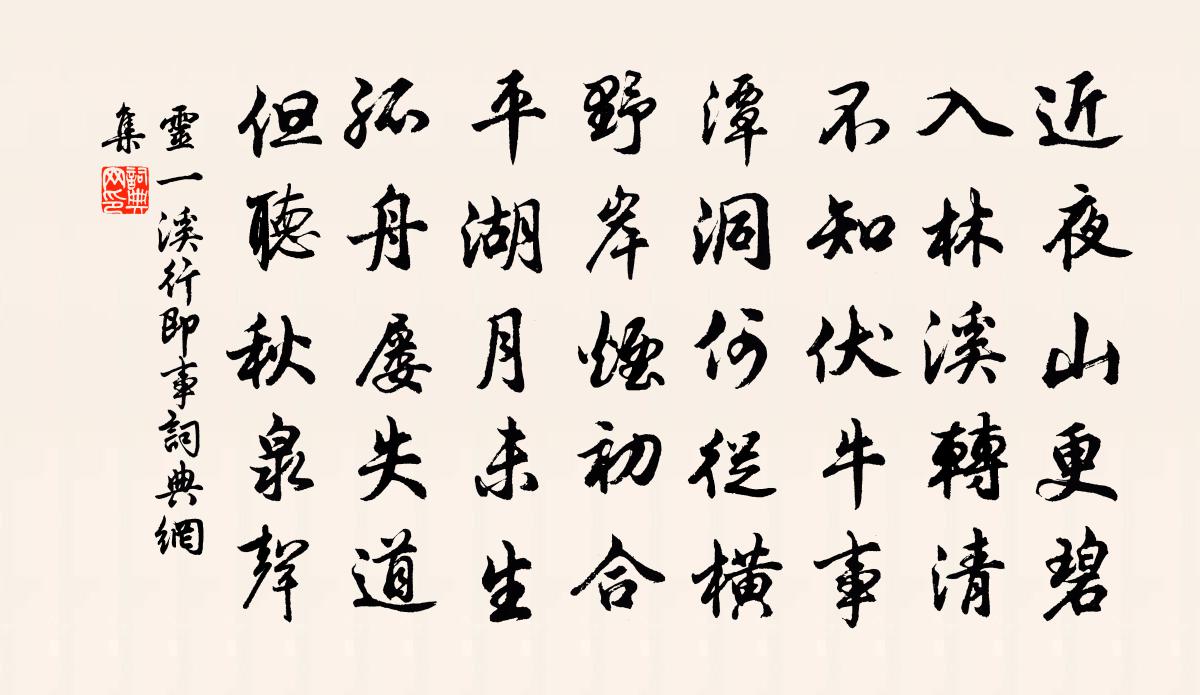 近夜山更碧
入林溪轉清
不知伏牛事
潭洞何從橫
野岸煙初合
平湖月未生
孤舟屡失道
但聽秋泉聲
靈一溪行即事詞典網
集
詞典
网印